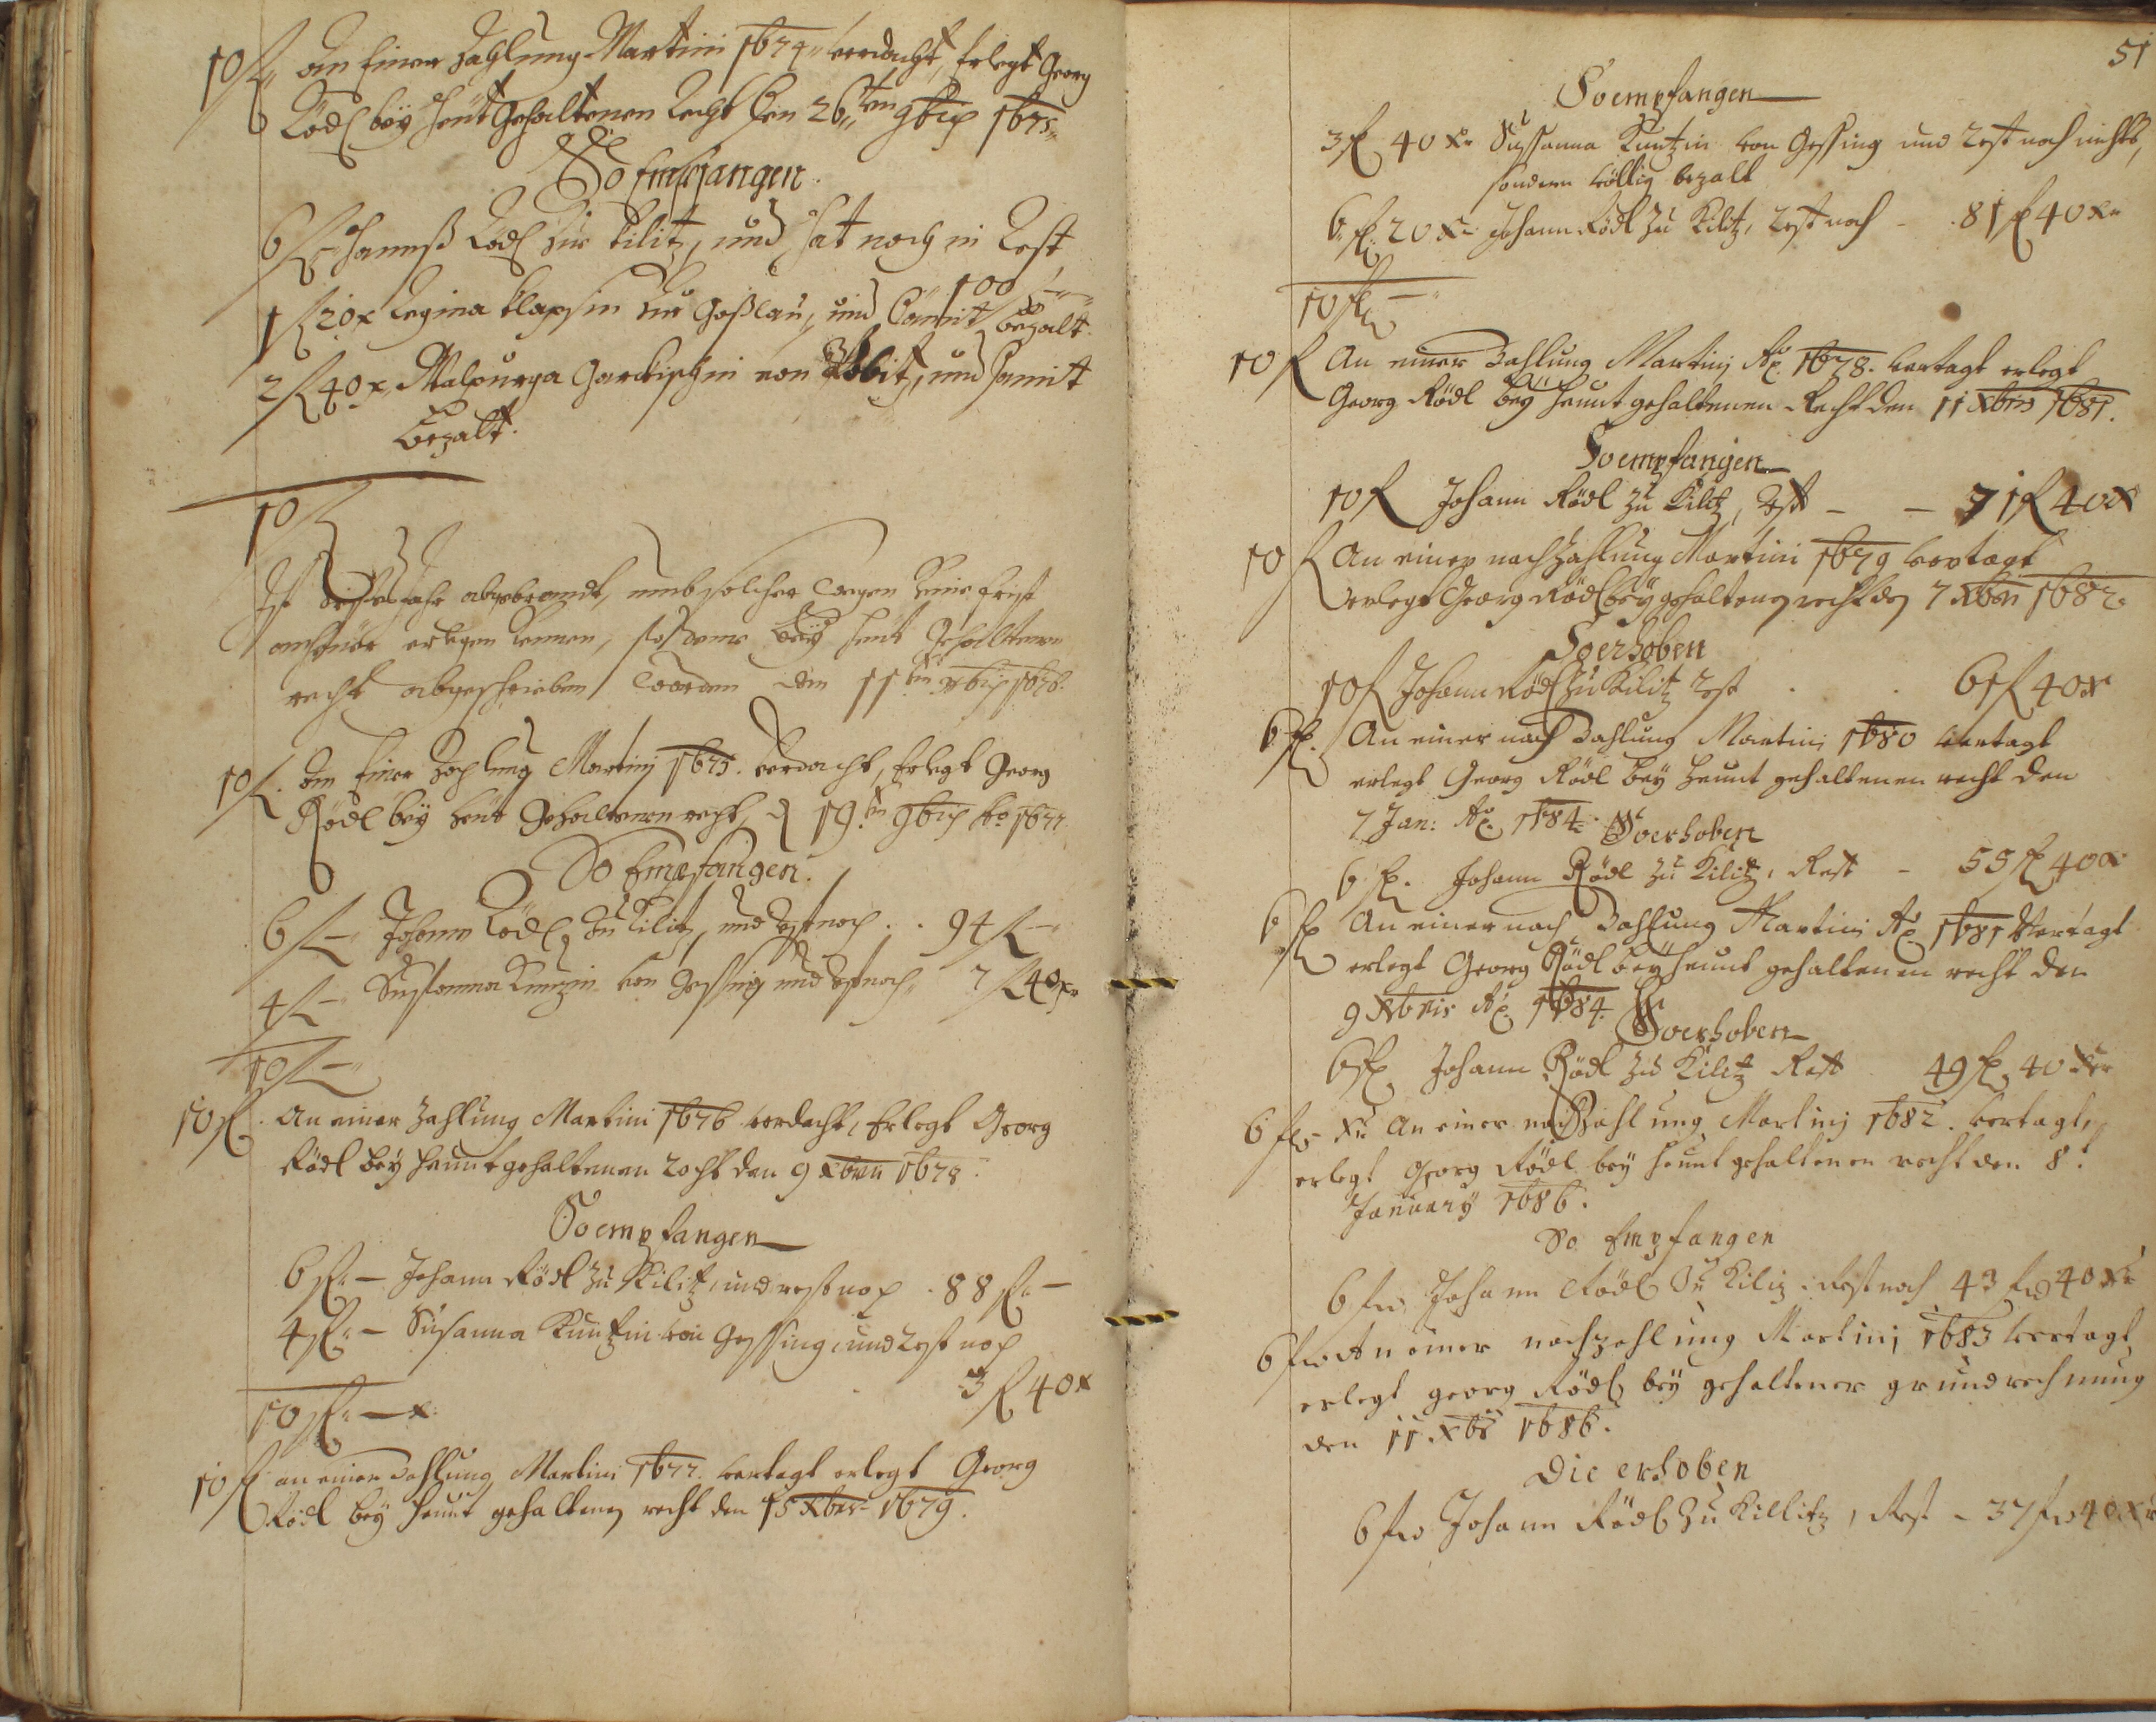 10 fl. an Einer Zahlung Martini 1674 verdacht, Erlegt Georg
Rödl bey heut Gehaltenen Recht den 26ten 9bris 1675
So Empfangen.
6 fl – Hannß Rödl zu Kilitz, und hat noch in Rest
100 fl –
1 fl 20 x Regina Klapsin zur Goßlau, und damit bezalt.
2 fl 40 x Walpurga Gareisin von Kobitz, und hemit
bezalt.
10 fl
Ist dises Jahr abgebrandt, umb solcher wegen keine frist
anheuer erlegen kennen, sodann bey heut gehaltenen
recht abgeschrieben worden den 11ten Xbris 1676.
10 fl. An Einer Zahlung Martinj 1675. verdacht, Erlegt Georg
Rödl bey heut Gehaltenen recht, d 19.ten 9bris Ao 1677
So Empfangen.
6 fl – Johann Rödl zu Kilitz, und rest noch . . 94 fl –
4 fl – Susanna Kunzin von Gessing und rest noch 7 fl 40 x
10 fl –
10 fl. An einer Zahlung Martini 1676 verdacht, Erlegt Georg
Rödl bey heunt gehaltenen Recht den 9 Xbris 1678.
So empfangen
6 fl – Johann Rödl zu Kilitz, und rest noch . 88 fl –
4 fl – Susanna Kuntzin von Gessing, und Rest noch
3 fl 40 x
10 fl – x
10 fl an einer Zahlung Martini 1677. vertagt erlegt Georg
Rödl bey heunt gehaltenen recht den 15 Xbris 1679.
51
So empfangen
3 fl 40 x Sussanna Kuntzin von Gessing und Rest noch nichts,
sondern völlig bezalt
6 fl 20 x Johann Rödl zu Kilitz, Rest noch – 81 fl 40 x
10 fl –
10 fl An einer Zahlung Martinj Ao 1678. vertagt erlegt
Georg Rödl bey heunt gehaltenen Recht den 11 Xbris 1681.
So empfangen
10 fl Johann Rödl zu Kilitz, Rest – – 71 fl 40 x
10 fl An einer nachZahlung Martini 1679 vertagt
erlegt Georg Rödl bey gehaltenen recht den 7 Xbris 1682.
So erhoben
10 fl Johann Rödl zu Kilitz Rest . . 61 fl 40 x
6 fl. An einer nach Zahlung Martini 1680 vertagt
erlegt Georg Rödl bey heunt gehaltenen recht den
7 Jan: Ao 1684. So erhoben
6 fl. Johann Rödl zu Kilitz, Rest – 55 fl 40 x
6 fl An einer nach Zahlung Martini Ao 1681 Vertagt
erlegt Georg Rödl bey heunt gehaltenen recht den
9 Xbris Ao 1684. So erhoben
6 fl Johann Rödl zu Kilitz Rest 49 fl 40 xer
6 fl – xr An einer nachZahlung Martinj 1682. vertagt,
erlegt Georg Rödl bey heunt gehaltenen recht den 8t
January 1686.
So Empfangen
6 fl Johann Rödl Zu Kiliz. Rest noch 43 fl 40 xr
6 fl An einer nachzahlung Martinj 1683 vertagt
erlegt georg Rödl bey gehaltener grundrechnung
den 11. Xbr 1686.
Die erhoben
6 fl Johann Rödl Zu Killitz, Rest – 37 fl 40 xr